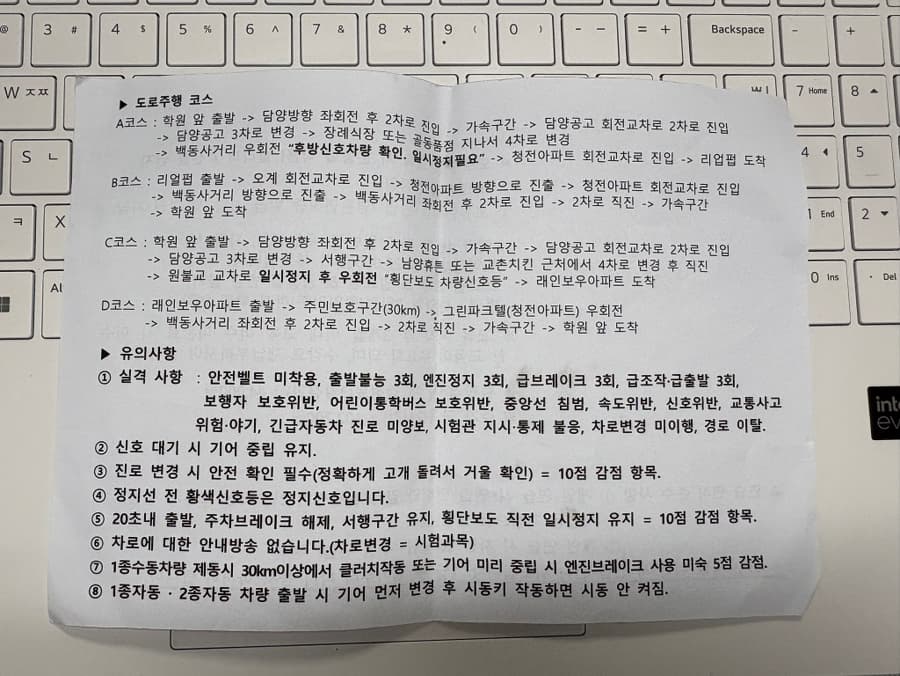 ▶ 도로주행 코스
A코스 : 학원 앞 출발 -> 담양방향 좌회전 후 2차로 진입 -> 가속구간 -> 담양공고 회전교차로 2차로 진입
-> 담양공고 3차로 변경 -> 장례식장 또는 골동품점 지나서 4차로 변경
-> 백동사거리 우회전 “후방신호차량 확인. 일시정지필요” -> 청전아파트 회전교차로 진입 -> 리얼펍 도착
B코스 : 리얼펍 출발 -> 오계 회전교차로 진입 -> 청전아파트 방향으로 진출 -> 청전아파트 회전교차로 진입
-> 백동사거리 방향으로 진출 -> 백동사거리 좌회전 후 2차로 진입 -> 2차로 직진 -> 가속구간
-> 학원 앞 도착
C코스 : 학원 앞 출발 -> 담양방향 좌회전 후 2차로 진입 -> 가속구간 -> 담양공고 회전교차로 2차로 진입
-> 담양공고 3차로 변경 -> 서행구간 -> 남양휴튼 또는 교촌치킨 근처에서 4차로 변경 후 직진
-> 원불교 교차로 일시정지 후 우회전 “횡단보도 차량신호등” -> 래인보우아파트 도착
D코스 : 래인보우아파트 출발 -> 주민보호구간(30km) -> 그린파크텔(청전아파트) 우회전
-> 백동사거리 좌회전 후 2차로 진입 -> 2차로 직진 -> 가속구간 -> 학원 앞 도착
▶ 유의사항
① 실격 사항 : 안전벨트 미착용, 출발불능 3회, 엔진정지 3회, 급브레이크 3회, 급조작·급출발 3회,
보행자 보호위반, 어린이통학버스 보호위반, 중앙선 침범, 속도위반, 신호위반, 교통사고
위험·야기, 긴급자동차 진로 미양보, 시험관 지시·통제 불응, 차로변경 미이행, 경로 이탈.
② 신호 대기 시 기어 중립 유지.
③ 진로 변경 시 안전 확인 필수(정확하게 고개 돌려서 거울 확인) = 10점 감점 항목.
④ 정지선 전 황색신호등은 정지신호입니다.
⑤ 20초내 출발, 주차브레이크 해제, 서행구간 유지, 횡단보도 직전 일시정지 유지 = 10점 감점 항목.
⑥ 차로에 대한 안내방송 없습니다.(차로변경 = 시험과목)
⑦ 1종수동차량 제동시 30km이상에서 클러치작동 또는 기어 미리 중립 시 엔진브레이크 사용 미숙 5점 감점.
⑧ 1종자동 · 2종자동 차량 출발 시 기어 먼저 변경 후 시동키 작동하면 시동 안 켜짐.